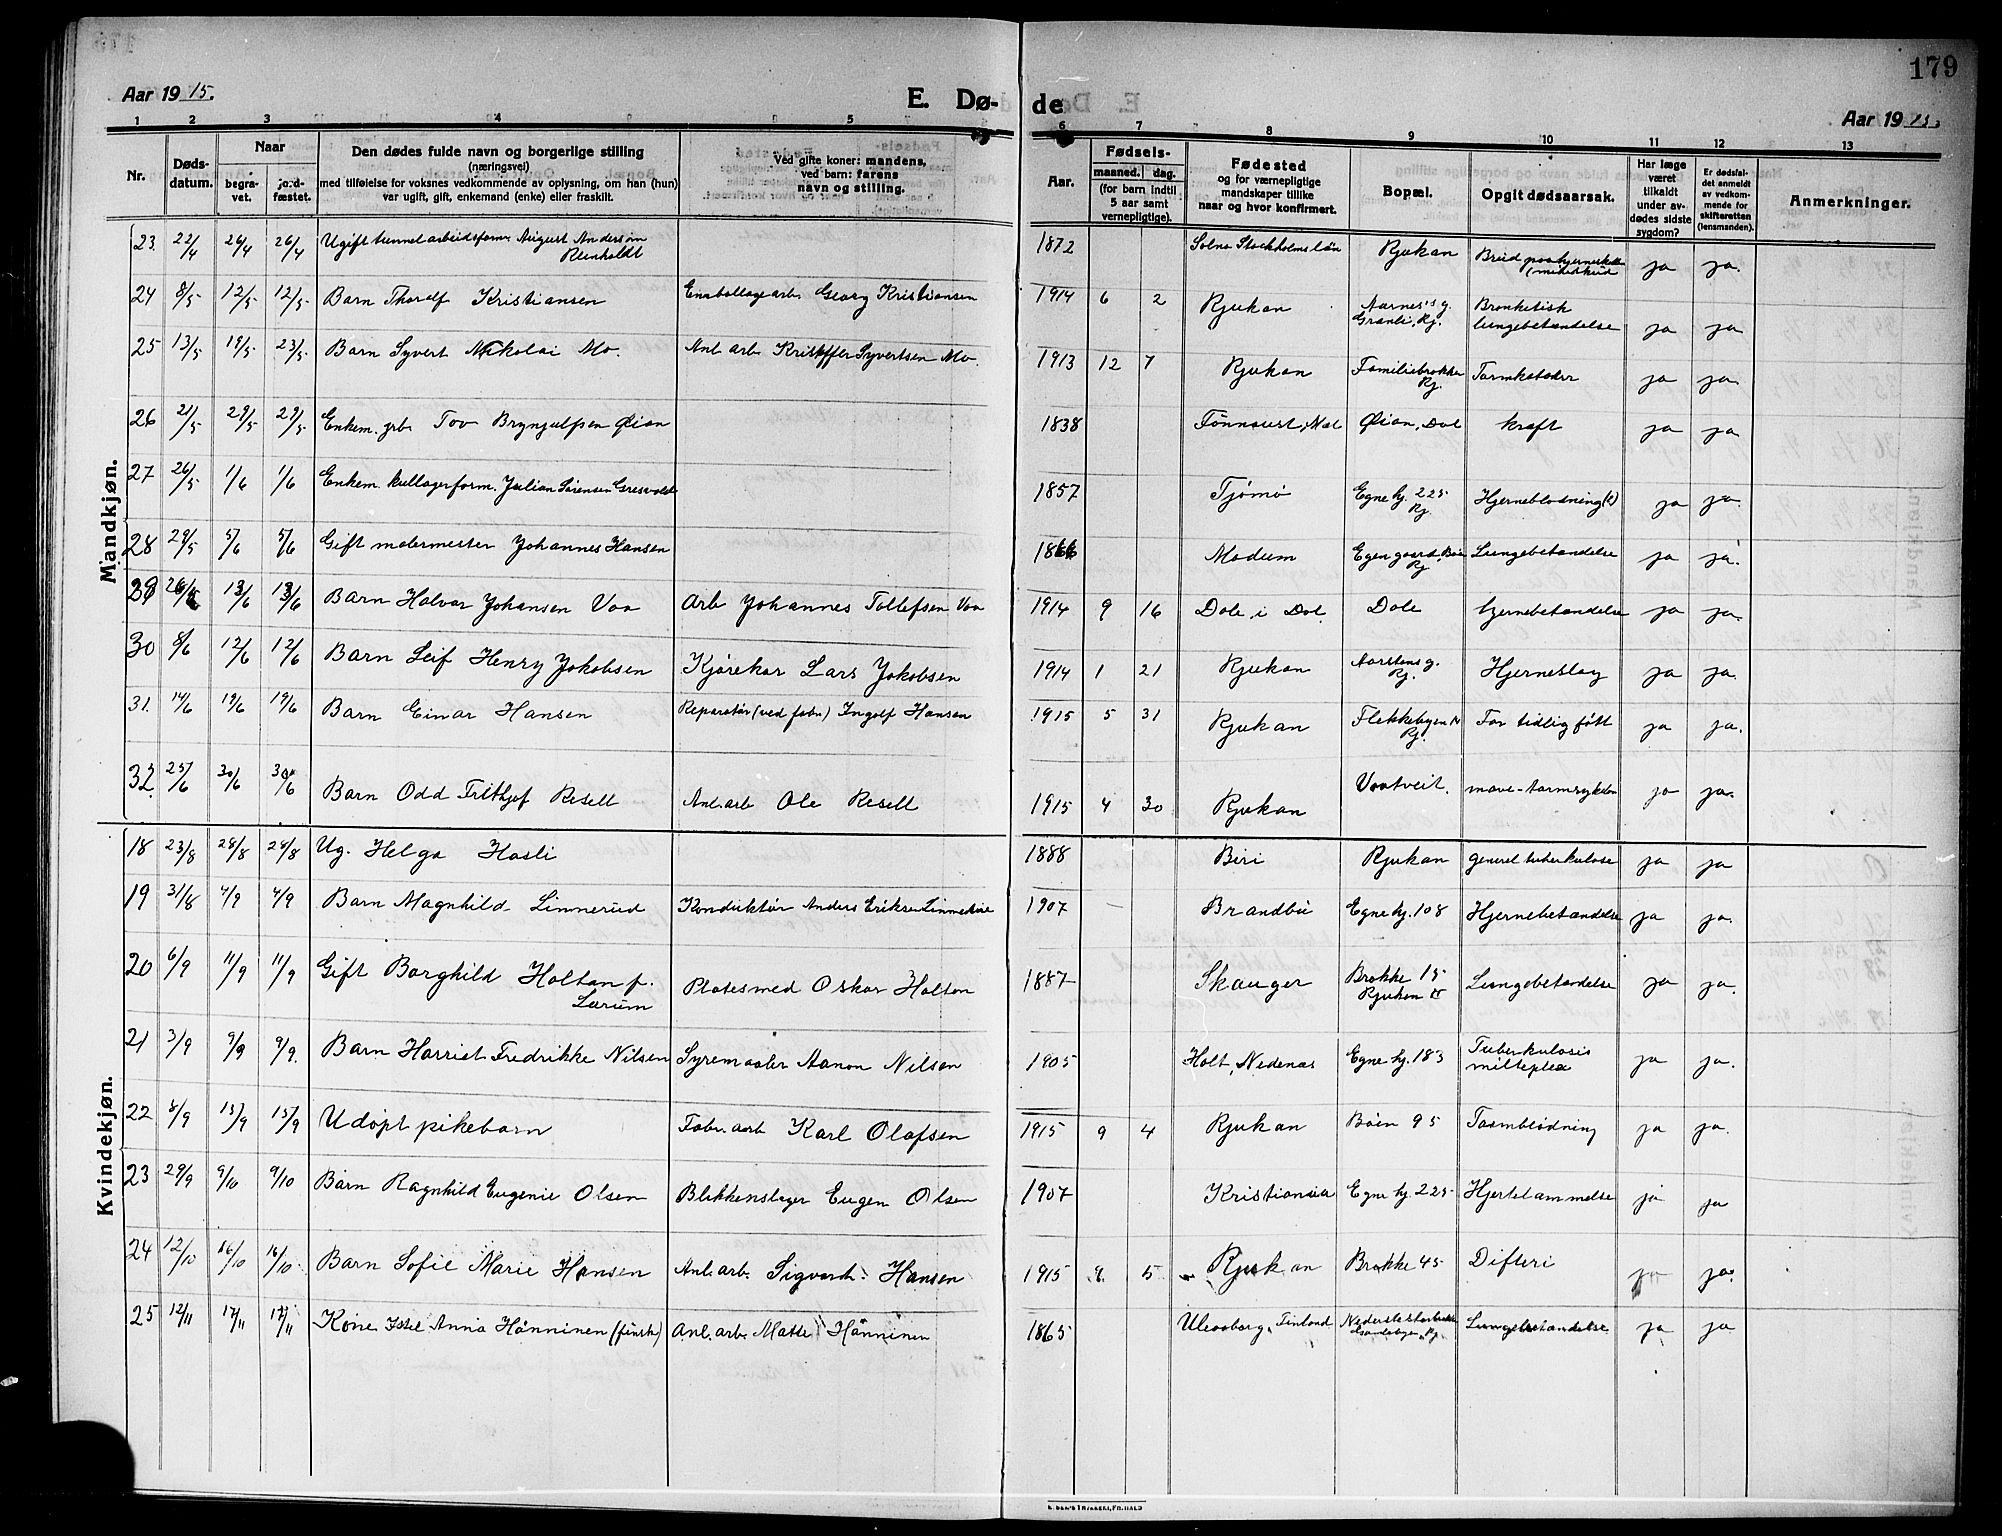 179
Aar 1915.
E. Dø-
de
Aar 1915.
1 2 3 4 5 6 7 8 9 10 11 12 13
Nr.
Døds-
datum.
Naar
begra-
vet.
jord-
fæstet.
Den dødes fulde navn og borgerlige stilling
(næringsvei)
med tilføielse for voksnes vedkommende av oplysning, om han (hun)
var ugift, gift, enkemand (enke) eller fraskilt.
Ved gifte koner: mandens,
ved barn: farens
navn og stilling.
Aar.
Fødsels-
maaned. dag.
(for barn indtil
5 aar samt
vernepligtige).
Fødested
og for værnepligtige
mandskaper tillike
naar og hvor konfirmert.
Bopæl.
Opgit dødsaarsak.
Har læge
været
tilkaldt
under av-
dødes sidste
sygdom?
Er dødsfal-
det anmeldt
av vedkom-
mende for
skifteretten
(lensmanden).
Anmerkninger.
Mandkjøn.
23 22/4 26/4 26/4 Ugift tunnelarbeidsform. August Andersson Reinholdt 1872 Solna Stockholms län Rjukan Brud paa ja ja.
24 8/5 12/5 12/5 Barn Thoralf Kristiansen Emballagearb. Georg Kristiansen 1914 6 2 Rjukan Aarnes's g. Granli, Rj. Bronketisk lungebetændelse ja ja
25 13/5 19/5 23/5 Barn Syvert Nikolai Mo. Anl. arb Kristoffer Syvertsen Mo. 1913 12 7 Rjukan Familiebrakke Rj. Tarmkatarr ja ja.
26 21/5 29/5 29/5 Enkem. grb. Tov Bryngulfsen Øian 1838 Øian, Dal kræft ja ja
27 26/5 1/6 1/6 Enkem. kullagerform. Julian Sørensen Gresvold 1857 Tjømø Egne hj. 225 Rj. Hjerneblødning ja ja.
28 29/5 5/6 5/6 Gift malermester Johannes Hansen 1866 Modum Egen gaard, Bøen Rj Lungebetændelse ja ja.
29 13/6 13/6 Barn Halvor Johansen Vaa Arb Johannes Tollefsen Vaa 1914 9 16 Dale i Dal. Dale hjernebetændelse ja ja.
30 8/6 12/6 12/6 Barn Leif Henry Jakobsen Kjørekar Lars Jakobsen 1914 1 21 Rjukan Rj. Hjerneslag ja ja.
31. 14/6 19/6 19/6 Barn Einar Hansen Reparatør (ved fabr) Ingolf Hansen 1915 5 31 Rjukan Flekkebyen Rj. For tidlig født ja ja.
32 25/6 30/6 30/6 Barn Odd Frithjof Resell Anl. arb Ole Resell 1915 4 30 Rjukan Vaatveit. mave-tarmsykdom ja ja.
Kvindekjøn.
18 23/8 28/8 28/8 Ug. Helga Hasli 1888 Biri Rjukan generel tuberkulose ja ja
19 31/8 4/9 4/9 Barn Magnhild Linnerud Konduktør Anders Eriksen Linnerud 1907 — Brandbu Egne hj. 108 Hjernebetændelse ja ja.
20 6/9 11/9 11/9 Gift Borghild Holtan f. Larum Platesmed Oskar Holtan 1887 Skauger Brakke 15 Rjukan Lungebetændelse ja ja.
21 3/9 9/9 9/9. Barn Harriet Fredrikke Nilsen Syremaaler Aanon Nilsen 1905 Holt, Nedenæs Egne hj. 183 Tuberkulosis ja ja.
22 8/9 13/9 13/9 Udøpt pikebarn Fabr. arb Karl Olafsen 1915 9 4 Rjukan Bøen 95 Tarmblødning ja ja.
23 29/9 9/10 9/10 Barn Ragnhild Eugenie Olsen Blikkenslager Eugen Olsen 1907 Kristiania Egne hj. 225 Hjertelammelse ja ja
24 12/10 16/10 16/10 Barn Sofie Marie Hansen Anl. arb. Sigvard Hansen 1915 9. 5 Rjukan Brakke 45 Difteri ja ja.
25 12/11 17/11 17/11 Kone Anna Hänninen (finsk) Anl. arb. Matte Hänninen 1865 Uleaaborg, Finland Lungebetændelse ja ja